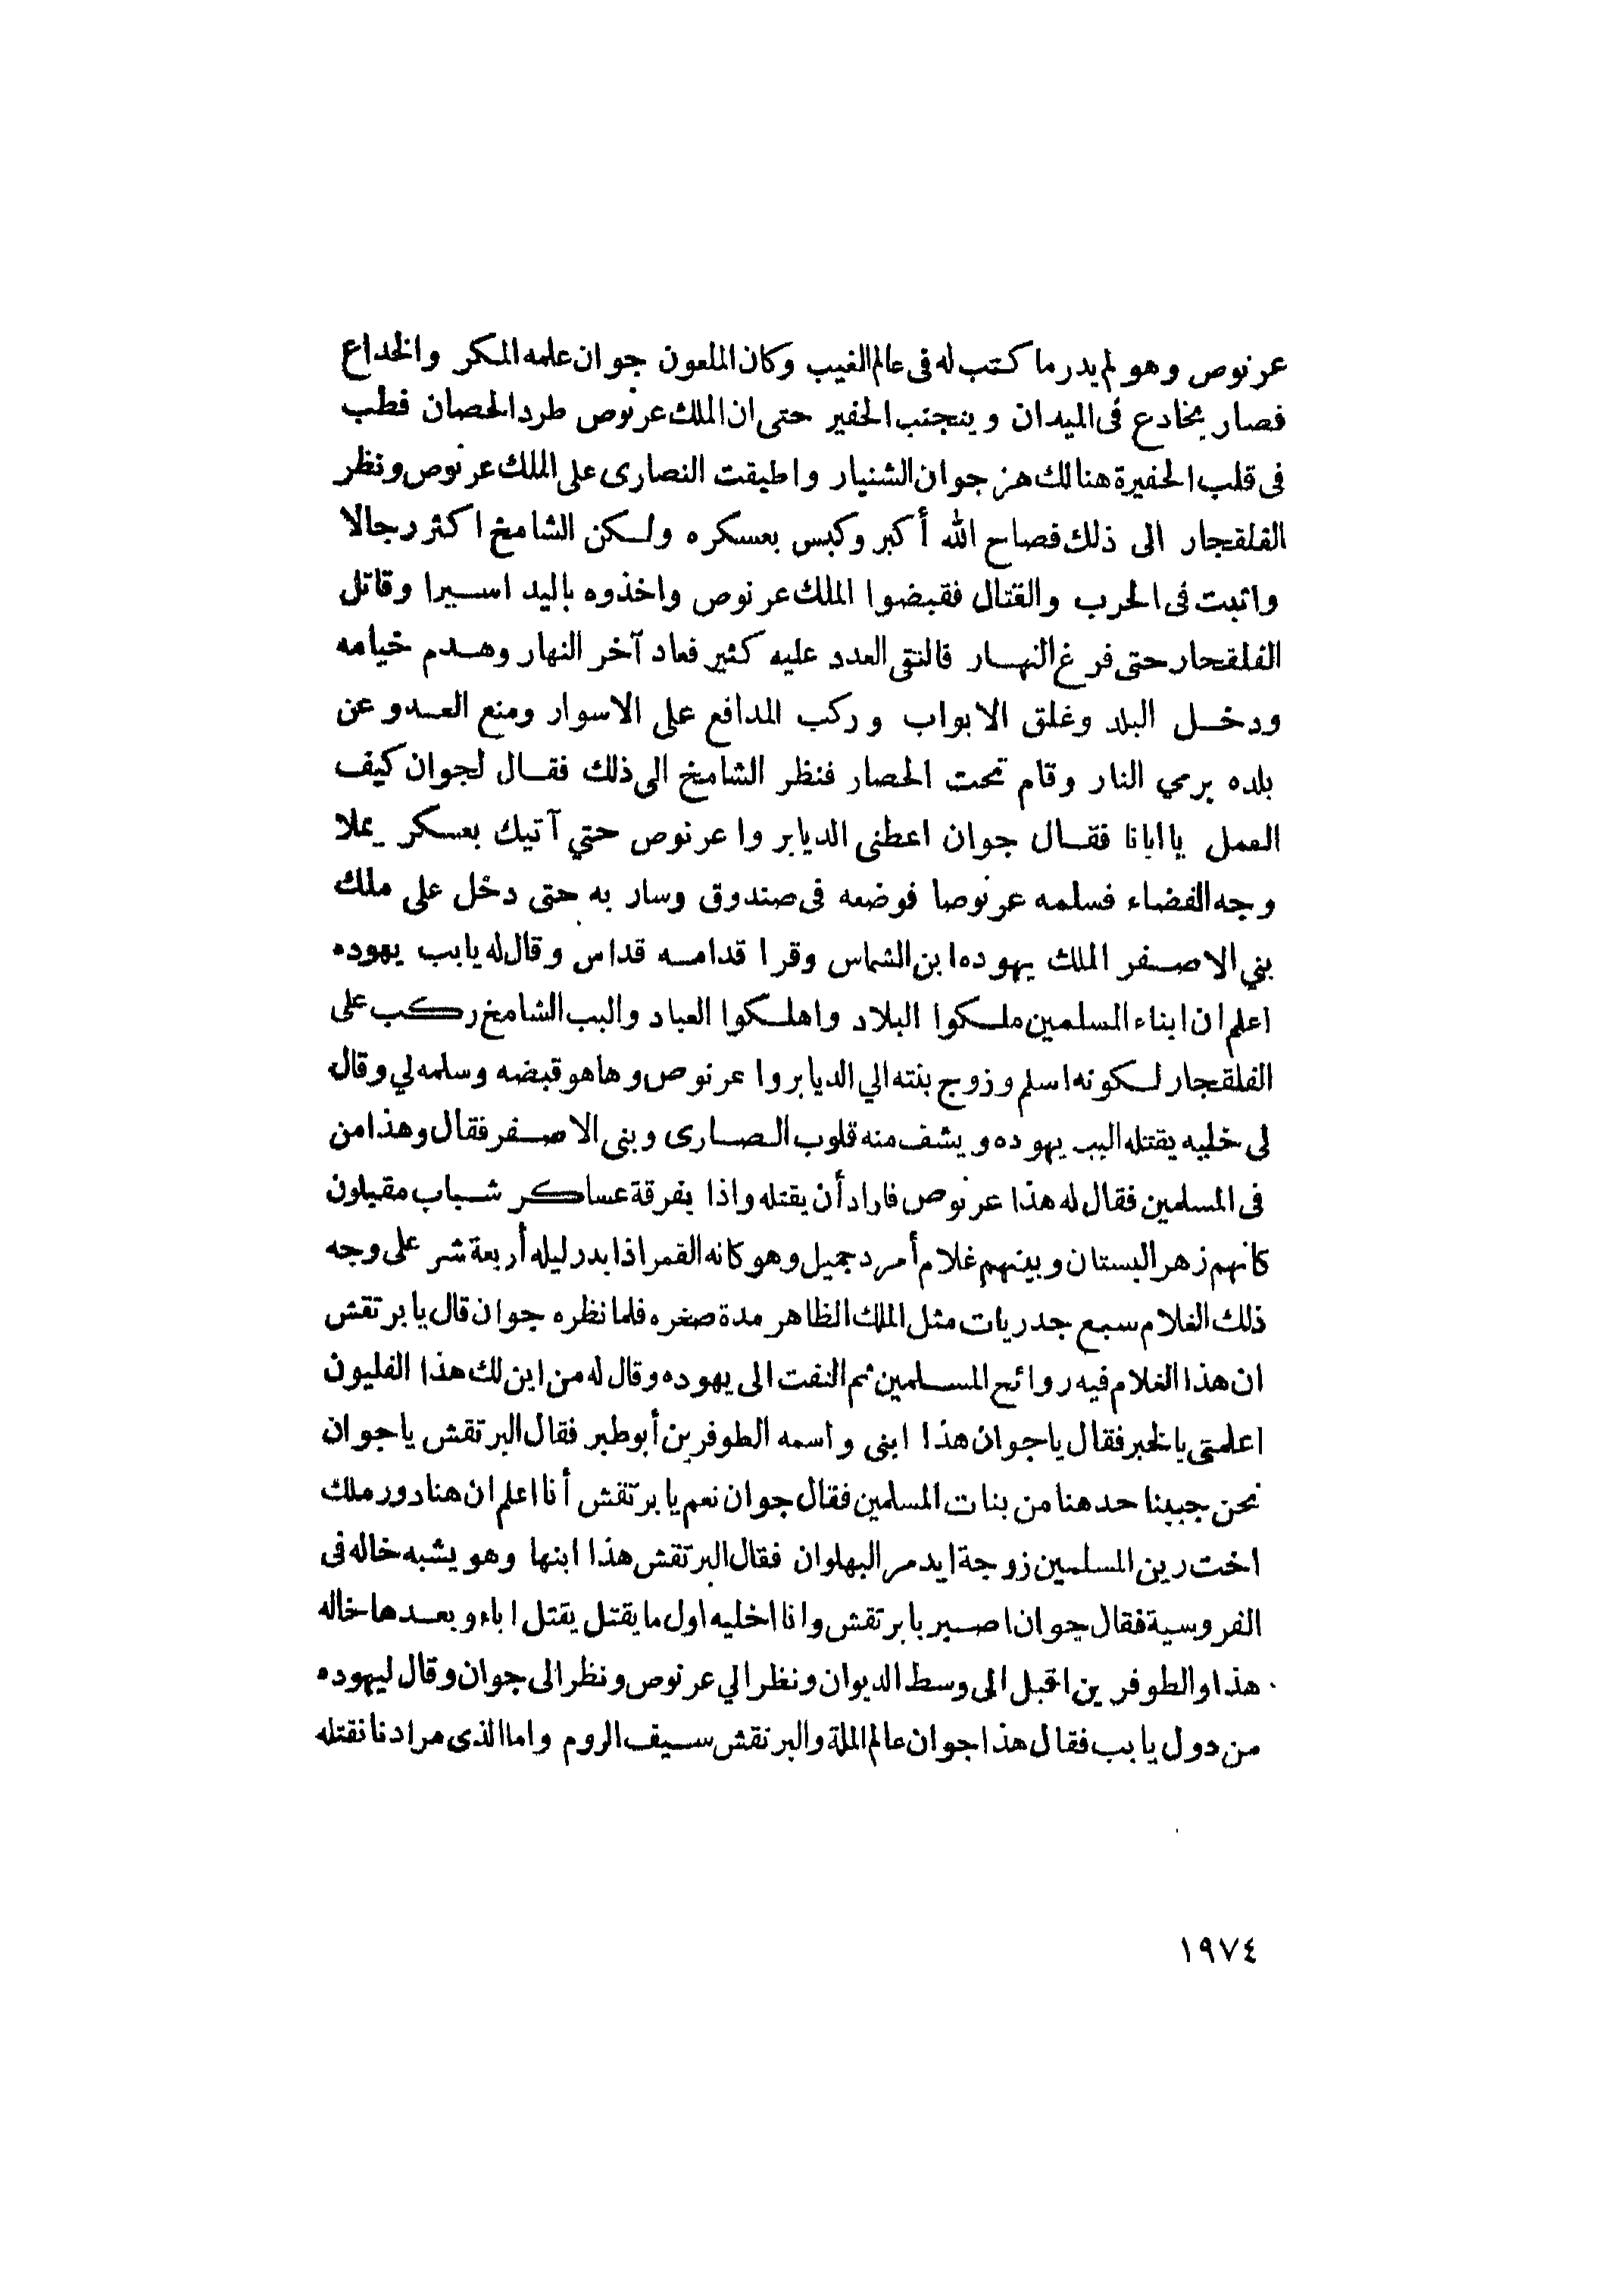 عرنوص وهو لم يدر ما كتب له فى عالم الغيب وكان الملعون جوان علمه المكر والخداع
فصار يخادع فى الميدان ويتجنب الحفير حتى ان الملك عرنوص طرد الحصان فطب
فى قلب الحفيرة هنالك هز جوان الشنيار واطبقت النصارى على الملك عرنوص ونظر
القلقجار الى ذلك فصاح الله أكبر وكبس بعسكره ولكن الشامخ اكثر رجالا
واثبت فى الحرب والقتال فقبضوا الملك عرنوص واخذوه باليد اسيرا وقاتل
الفلقجار حتى فرغ النهار فالتقى العدد عليه كثير فعاد آخر النهار وهدم خيامه
ودخل البلد وغلق الابواب وركب المدافع على الاسوار ومنع العدو عن
بلده برمي النار وقام تحت الحصار فنظر الشامخ الى ذلك فقال لجوان كيف
العمل يا ابانا فقال جوان اعطنى الديابر وا عرنوص حتي آتيك بعسكر يملا
وجه الفضاء فسلمه عرنوصا فوضعه فى صندوق وسار به حتى دخل على ملك
بني الاصفر الملك يهوده ابن الشماس وقرا قدامه قداس وقال له يا بب يهوده
اعلم ان ابناء المسلمين ملكوا البلاد واهلكوا العباد والبب الشامخ ركب على
الفلقجار لكونه اسلم وزوج بنته الي الديابروا عرنوص وها هو قبضه وسلمه لي وقال
لى خليه يقتله البب يهوده ويشف منه قلوب الصارى وبنى الاصفر فقال وهذا من
فى المسلمين فقال له هذا عرنوص فاراد أن يقتله واذا بفرقة عساكر شباب مقبلون
كانهم زهر البستان وبينهم غلام أمرد جميل وهو كانه القمر اذا بدر ليله أربعة شر على وجه
ذلك الغلام سبع جدريات مثل الملك الظاهر مدة صغره فلما نظره جوان قال يا برتقش
ان هذا الغلام فيه روائح المسلمين ثم التفت الى يهوده وقال له من اين لك هذا الفليون
اعلمتى بالخبر فقال يا جوان هذا ابنى واسمه الطوفرين أبوطبر فقال البرتقش يا جوان
نحن جبينا حد هنا من بنات المسلمين فقال جوان نعم يا برتقش أنا اعلم ان هنا دور ملك
اخت رين المسلمين زوجة ايدمر البهلوان فقال البرتقش هذا ابنها وهو يشبه خاله فى
الفروسية فقال جوان اصبر يا برتقش وانا اخليه اول ما يقتل يقتل اباه وبعدها خاله
هذا والطوفرين اقبل الى وسط الديوان ونظر الي عرنوص ونظر الى جوان وقال ليهوده
من دول يا بب فقال هذا جوان عالم الملة والبرتقش سيف الروم واما الذى مرادنا نقتله
١٩٧٤